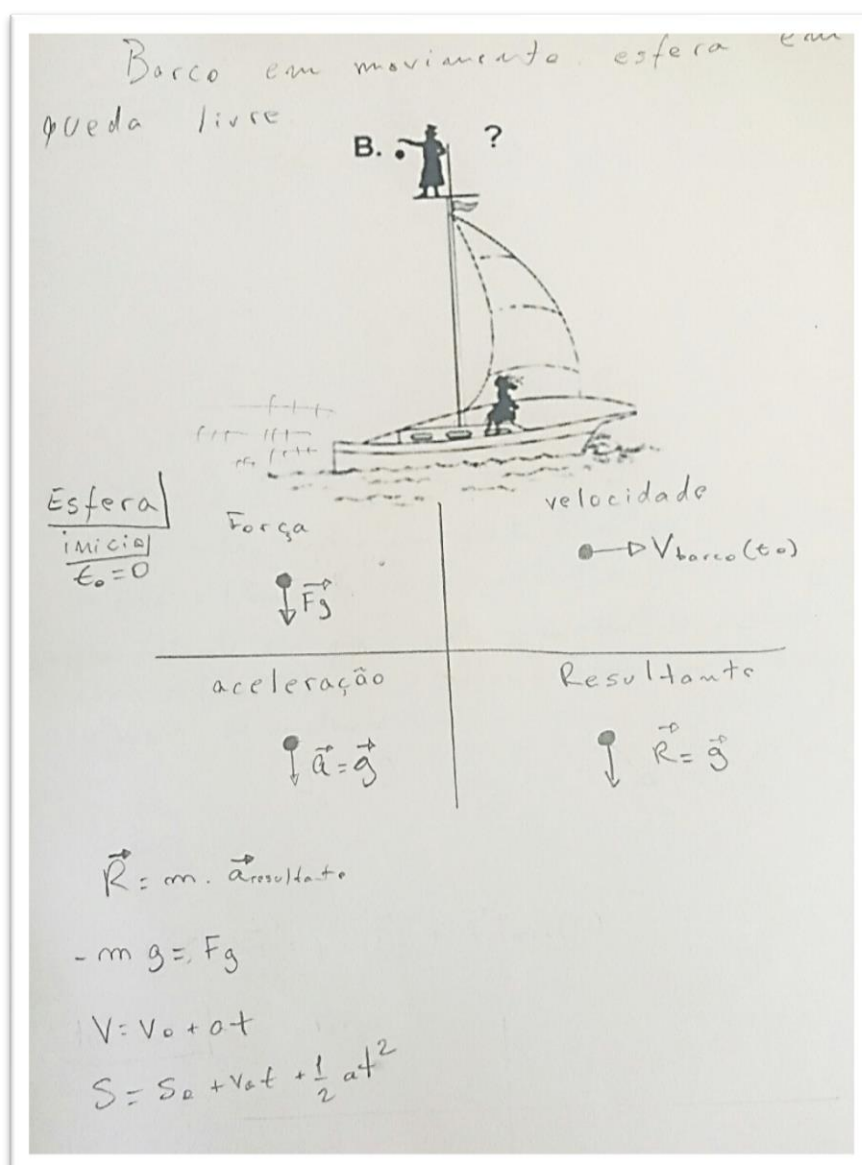 Barco em movimento. esfera em
queda livre
B. ?
Esfera
inicial
t₀=0
Força
F⃗g
velocidade
Vbarco(t₀)
aceleração
a⃗=g⃗
Resultante
R⃗=g⃗
R⃗=m.a⃗resultante
-mg=Fg
V=V₀+at
S=S₀+V₀t+½at²